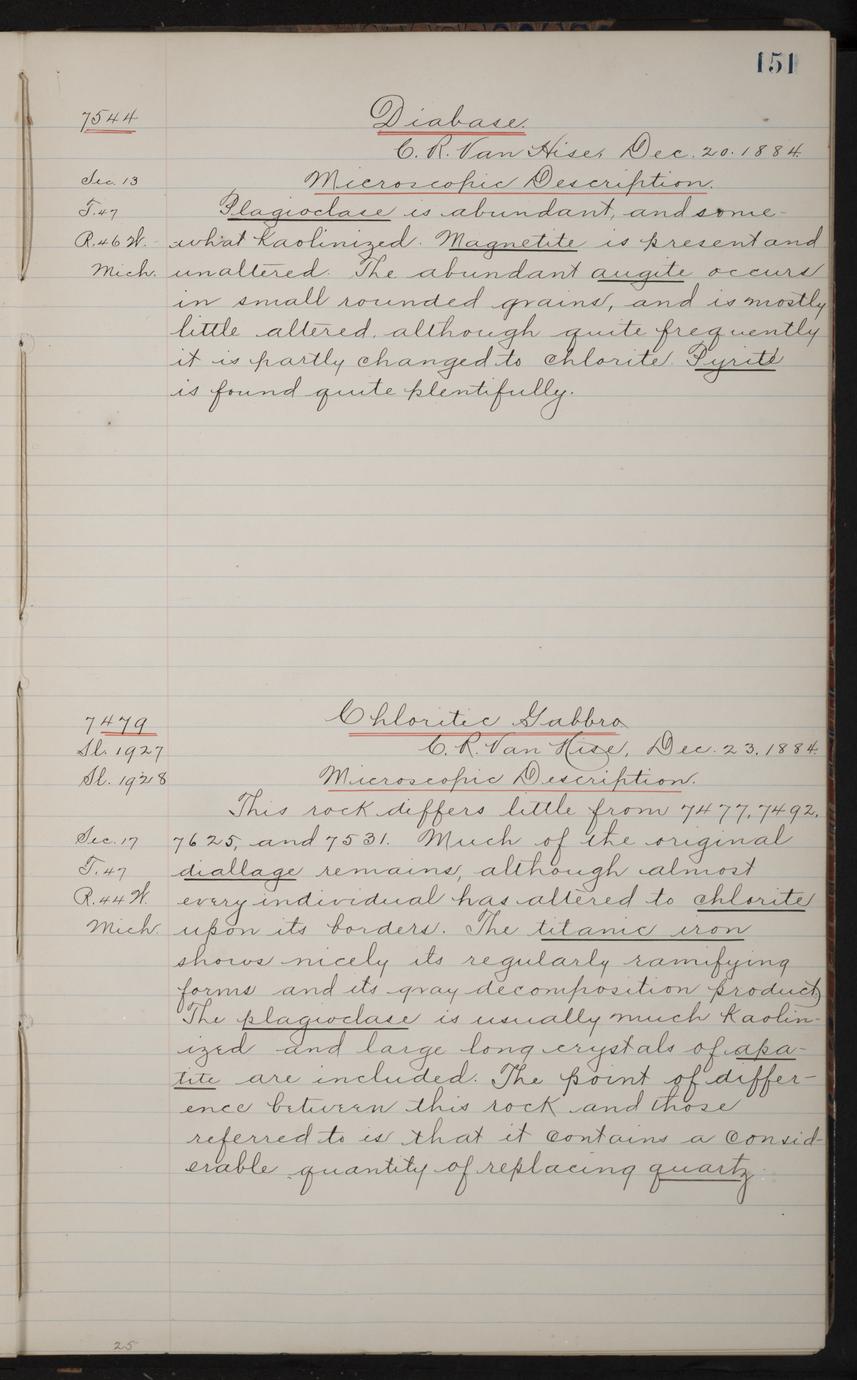 151
7544 Diabase.
C. R. Van Hise, Dec. 20. 1884
Sec. 13 Microscopic Description.
T. 47 Plagioclase is abundant, and some-
R. 46 W. what Kaolinized. Magnetite is present and
Mich. unaltered. The abundant augite occurs
in small rounded grains, and is mostly
little altered, although quite frequently
it is partly changed to chlorite. Pyrite
is found quite plentifully.
7479 Chloritic Gabbro
Sl. 1927 C. R. Van Hise, Dec. 23, 1884.
Sl. 1928 Microscopic Description.
This rock differs little from 7477, 7492,
Sec. 17 7625, and 7531. Much of the original
T. 47 diallage remains, although almost
R. 44 W. every individual has altered to chlorite
Mich. upon its borders. The titanic iron
shows nicely its regularly ramifying
forms and its gray decomposition product,
The plagioclase is usually much Kaolin-
ized and large long crystals of apa-
tite are included. The point of differ-
ence between this rock and those
referred to is that it contains a consid-
erable quantity of replacing quartz.
25